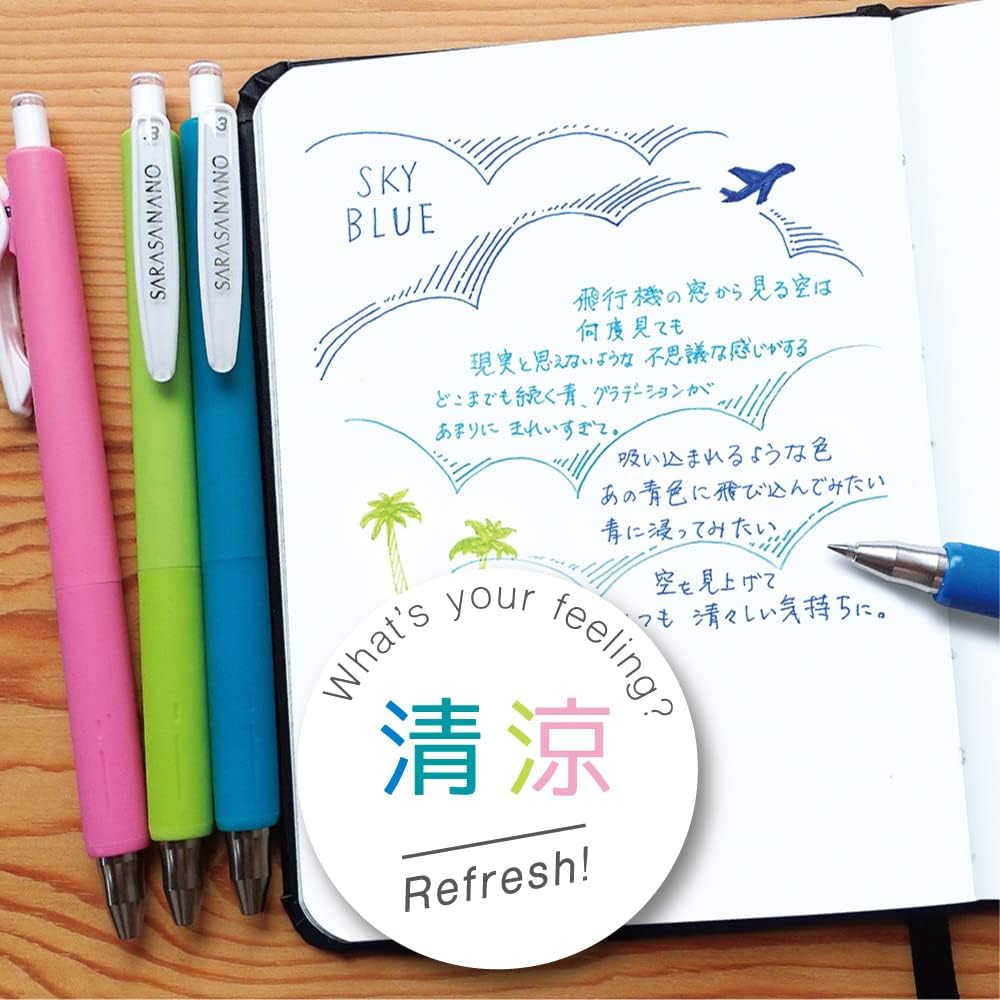 .3
SARASA NANO
3
SARASA NANO
SKY
BLUE
飛行機の窓から見る空は
何度見ても
現実と思えないような 不思議な感じがする
どこまでも続く青、グラデーションが
あまりに きれいすぎて。
吸い込まれるような色
あの青色に飛び込んでみたい
青に浸ってみたい
空を見上げて
つも 清々しい気持ちに。
What's your feeling?
清涼
Refresh!